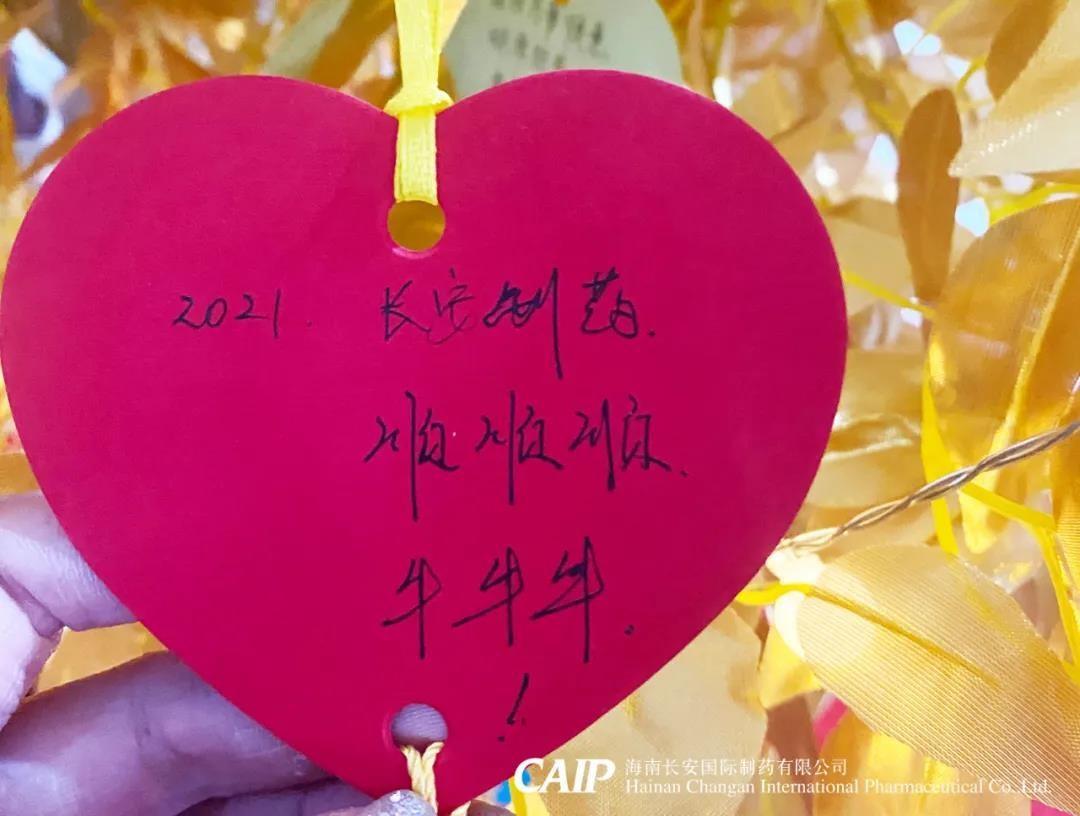 2021. 长安制药.
顺顺顺.
牛牛牛.
!
CAIP 海南长安国际制药有限公司
Hainan Changan International Pharmaceutical Co., Ltd.